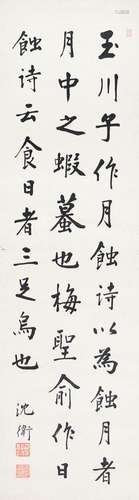 玉川子作月蝕詩以為蝕月者
月中之蝦蟇也梅聖俞作日
蝕詩云食日者三足烏也
沈衛